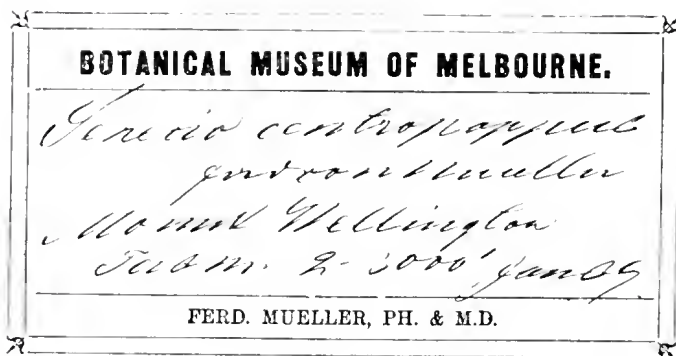 BOTANICAL MUSEUM OF MELBOURNE.
Senecio centropappus
ferd von Mueller
Mount Wellington
Tasm. 2-3000'
FERD. MUELLER, PH. & M.D.